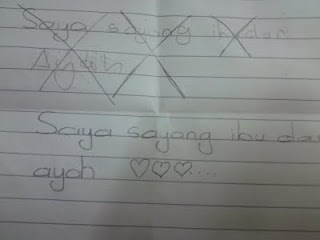 Saya sayang ibu dan
Ayah
Saya sayang ibu da
ayah ♡♡♡....